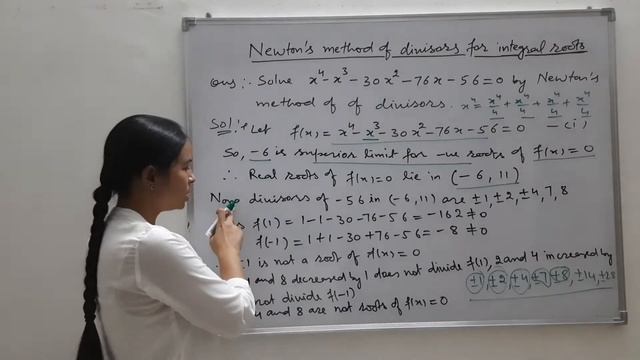 Newton's method of divisors for integral roots
Ques :- Solve x⁴-x³-30x²-76x-56=0 by Newton's
method of of divisors. x⁴ = x⁴/4 + x⁴/4 + x⁴/4 + x⁴/4
Sol! :- Let f(x) = x⁴-x³-30x²-76x-56=0 —(i)
So, -6 is superior limit for -ve roots of f(x)=0
∴ Real roots of f(x)=0 lie in (-6, 11)
Now divisors of -56 in (-6, 11) are ±1, ±2, ±4, 7, 8
f(1) = 1-1-30-76-56 = -162 ≠ 0
f(-1) = 1+1-30+76-56 = -8 ≠ 0
1 is not a root of f(x)=0
and 8 decreased by 1 does not divide f(1), 2 and 4 increased by
not divide f(-1) ±1, ±2, ±4, ±7, ±8, ±14, ±28
and 8 are not roots of f(x)=0